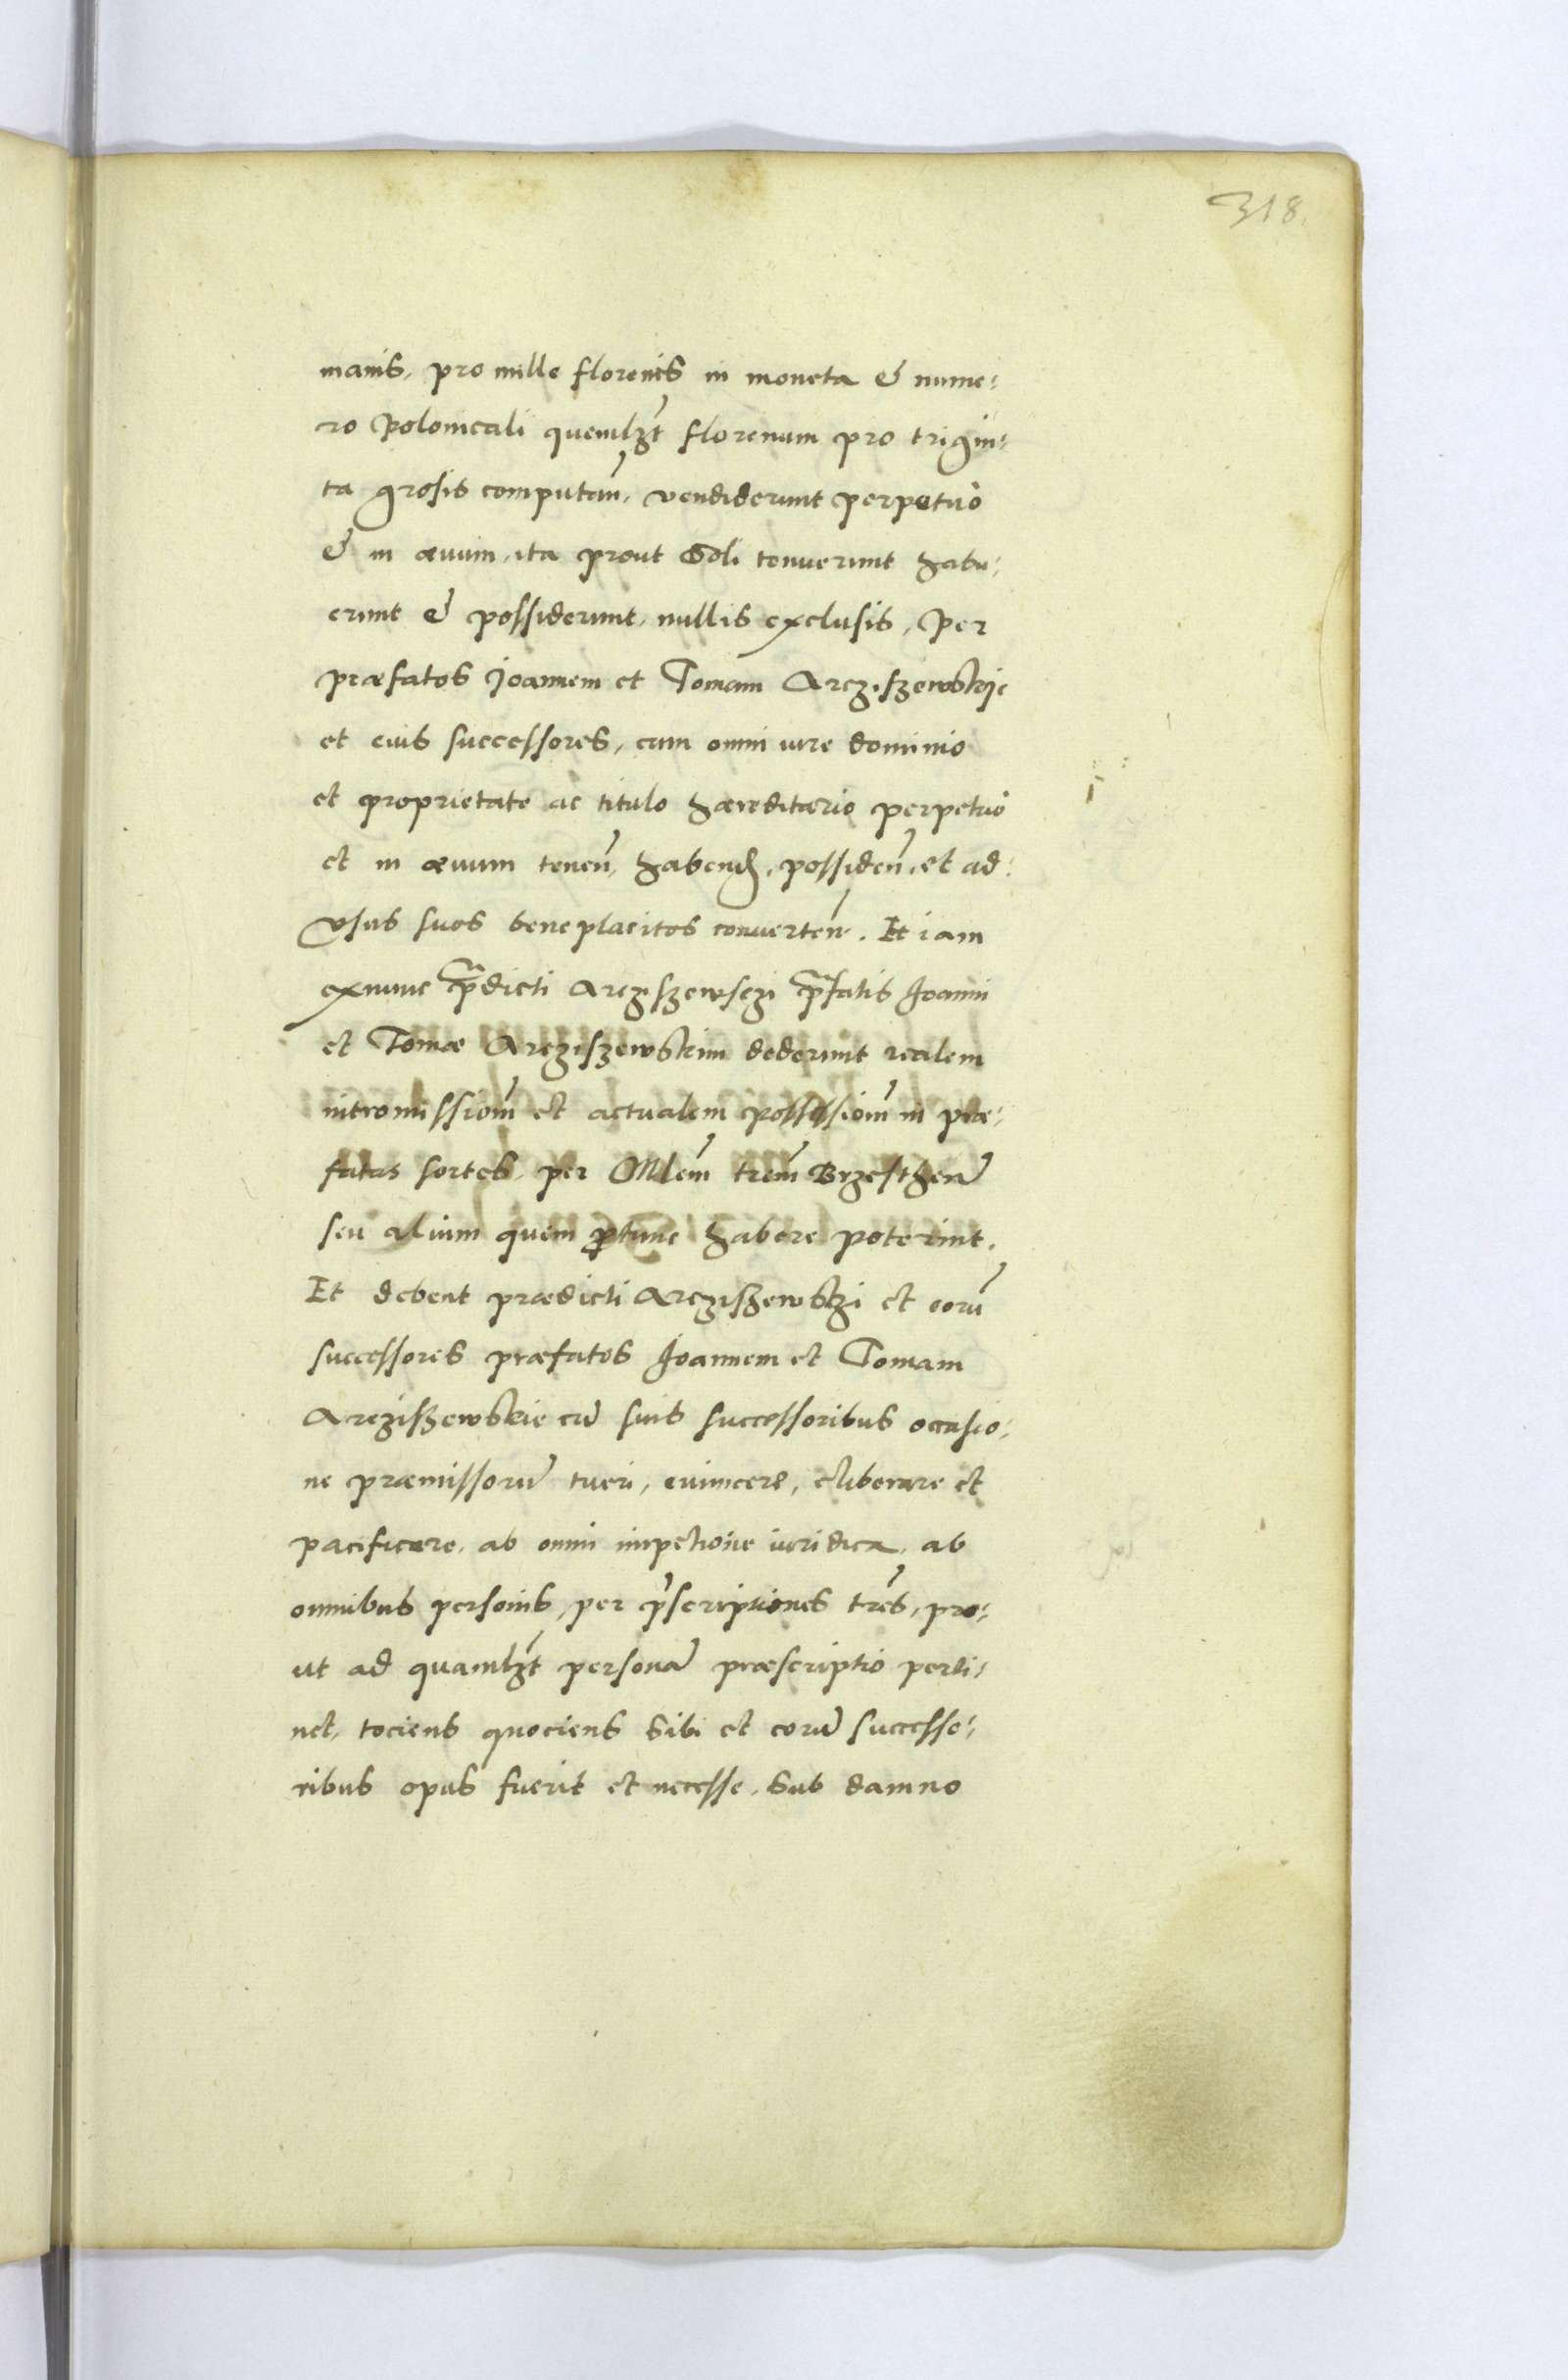 318
manis, pro mille florenis in moneta & nume:
ro Polonicali quemlʒt florenum pro trigin:
ta grosis computan̄, vendiderunt perpetuò
& in ævum, ita prout soli tenuerunt habu:
erunt & possiderunt, nullis exclusis, Per
præfatos Joannem et Tomam Arcziszewskie
et eius successores, cum omni iure dominio
et proprietate ac titulo hæreditario perpetuò
et in ævum tenen̄, habend, possiden̄, et ad
vsus suos beneplacitos converten̄. Et iam
exnunc p̄dicti Arcziszewsczi p̄fatis Joanni
et Tomæ Arcziszewskim dederunt realem
intromissiom̄ et actualem possessiom̄ in præ:
fatas sortes, per Mlem̄ trem̄ Brzesthen̄
seu alium quem protunc habere poterint.
Et debent prædicti Arcziszewskzi et eorū
successores præfatos Joannem et Tomam
Arcziszewskie cū suis successoribus occasio:
ne præmissorū tueri, evincere, eliberare et
pacificare, ab omni impetione iuridica, ab
omnibus personis, per p̄scriptiones tr̄es, pro:
ut ad quamlʒt personā præscriptio perti:
net, tociens quociens sibi et eorū successo:
ribus opus fuerit et necesse, Sub damno